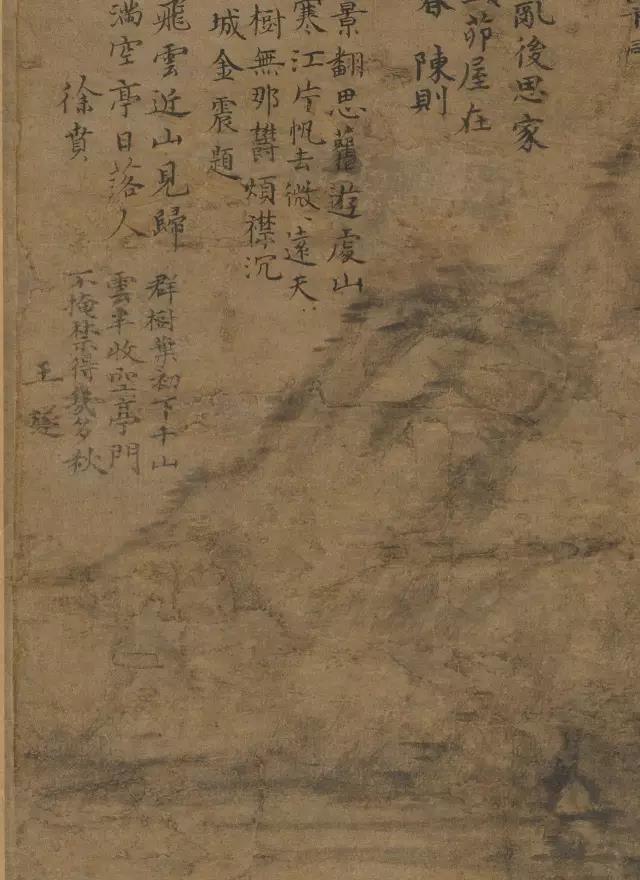 亂後思家
茆屋在
春 陳則
景翻思舊遊虞山
寒江片帆去微〻遠
樹無那鬱煩襟沉
城金震題
飛雲近山見歸
滿空亭日落人
徐賁
群樹葉初下千山
雲半收空亭門
不掩禁得幾多秋
王璲